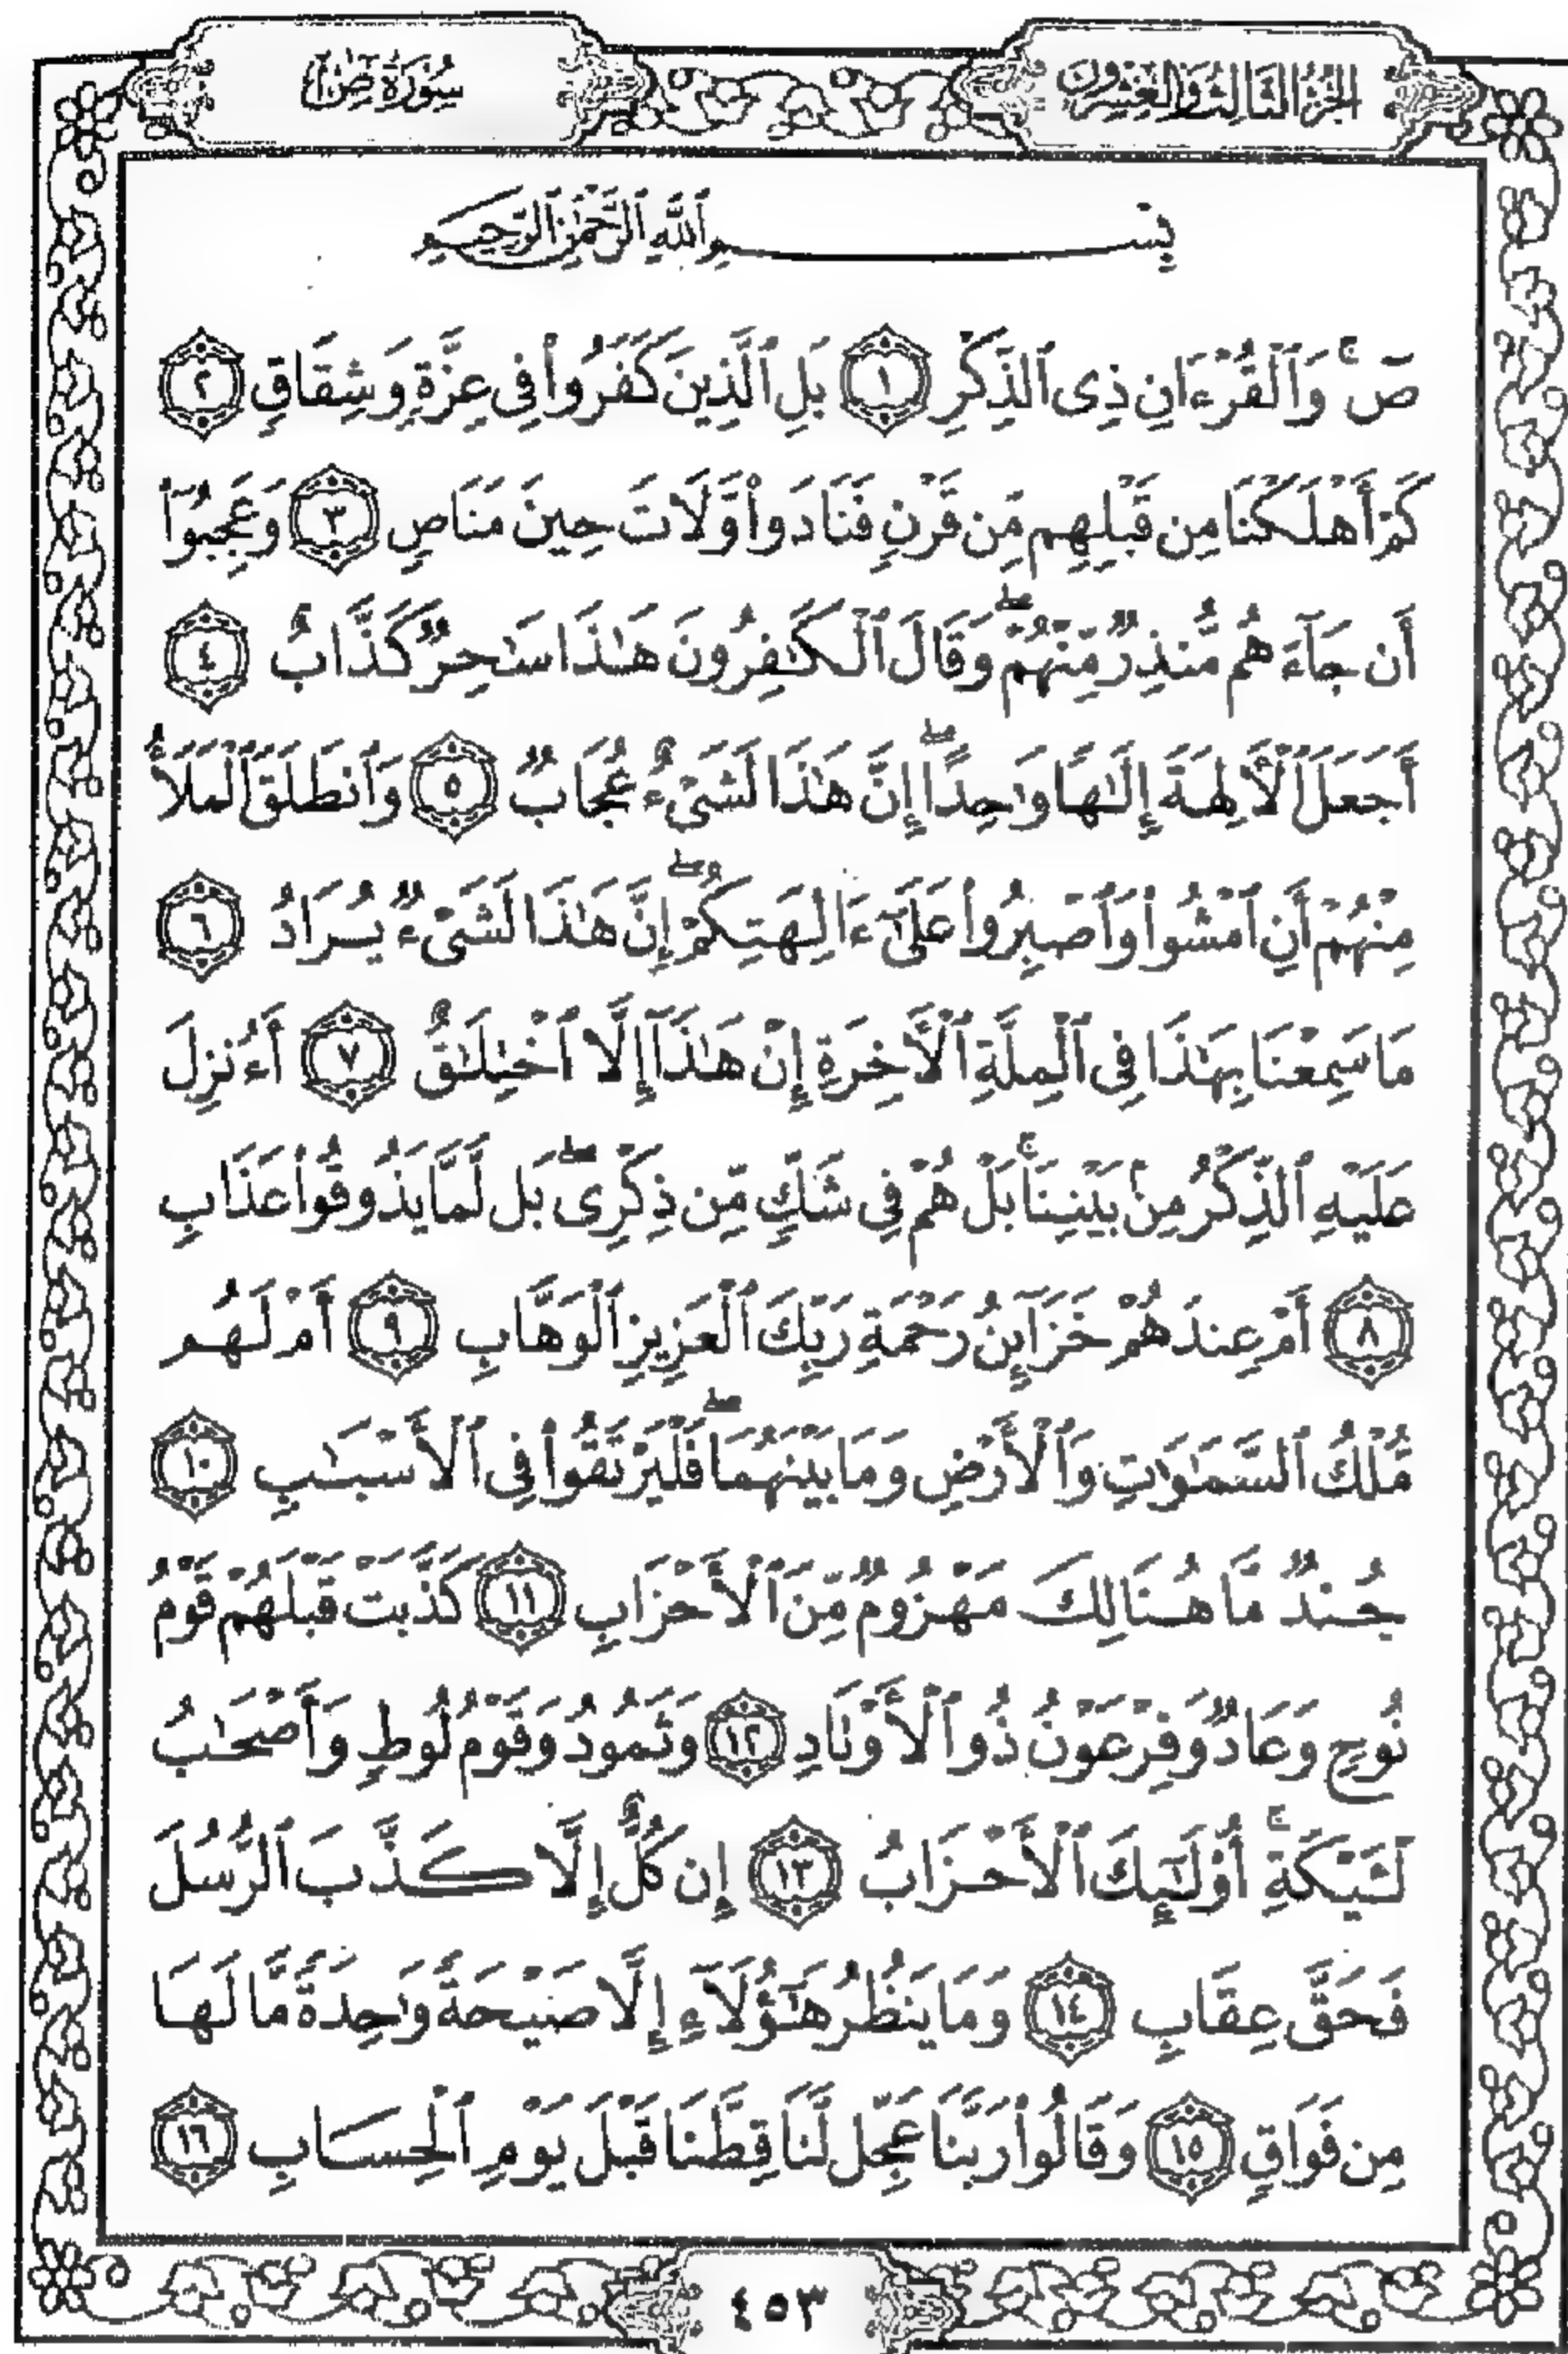 الجزء الثالث والعشرون
سورة ص
بِسْمِ ٱللَّهِ ٱلرَّحْمَٰنِ ٱلرَّحِيمِ
صٓ ۚ وَٱلْقُرْءَانِ ذِى ٱلذِّكْرِ ١ بَلِ ٱلَّذِينَ كَفَرُوا۟ فِى عِزَّةٍ وَشِقَاقٍ ٢
كَمْ أَهْلَكْنَا مِن قَبْلِهِم مِّن قَرْنٍ فَنَادَوا۟ وَّلَاتَ حِينَ مَنَاصٍ ٣ وَعَجِبُوٓا۟
أَن جَآءَهُم مُّنذِرٌ مِّنْهُمْ ۖ وَقَالَ ٱلْكَٰفِرُونَ هَٰذَا سَٰحِرٌ كَذَّابٌ ٤
أَجَعَلَ ٱلْأَلِهَةَ إِلَٰهًا وَٰحِدًا ۖ إِنَّ هَٰذَا لَشَىْءٌ عُجَابٌ ٥ وَٱنطَلَقَ ٱلْمَلَأُ
مِنْهُمْ أَنِ ٱمْشُوا۟ وَٱصْبِرُوا۟ عَلَىٰٓ ءَالِهَتِكُمْ ۖ إِنَّ هَٰذَا لَشَىْءٌ يُرَادُ ٦
مَا سَمِعْنَا بِهَٰذَا فِى ٱلْمِلَّةِ ٱلْأَخِرَةِ إِنْ هَٰذَآ إِلَّا ٱخْتِلَٰقٌ ٧ أَءُنزِلَ
عَلَيْهِ ٱلذِّكْرُ مِنۢ بَيْنِنَا ۚ بَلْ هُمْ فِى شَكٍّ مِّن ذِكْرِى ۖ بَل لَّمَّا يَذُوقُوا۟ عَذَابِ
٨ أَمْ عِندَهُمْ خَزَآئِنُ رَحْمَةِ رَبِّكَ ٱلْعَزِيزِ ٱلْوَهَّابِ ٩ أَمْ لَهُم
مُّلْكُ ٱلسَّمَٰوَٰتِ وَٱلْأَرْضِ وَمَا بَيْنَهُمَا ۖ فَلْيَرْتَقُوا۟ فِى ٱلْأَسْبَٰبِ ١٠
جُندٌ مَّا هُنَالِكَ مَهْزُومٌ مِّنَ ٱلْأَحْزَابِ ١١ كَذَّبَتْ قَبْلَهُمْ قَوْمُ
نُوحٍ وَعَادٌ وَفِرْعَوْنُ ذُو ٱلْأَوْتَادِ ١٢ وَثَمُودُ وَقَوْمُ لُوطٍ وَأَصْحَٰبُ
لْـَٔيْكَةِ ۚ أُو۟لَٰٓئِكَ ٱلْأَحْزَابُ ١٣ إِن كُلٌّ إِلَّا كَذَّبَ ٱلرُّسُلَ
فَحَقَّ عِقَابِ ١٤ وَمَا يَنظُرُ هَٰٓؤُلَآءِ إِلَّا صَيْحَةً وَٰحِدَةً مَّا لَهَا
مِن فَوَاقٍ ١٥ وَقَالُوا۟ رَبَّنَا عَجِّل لَّنَا قِطَّنَا قَبْلَ يَوْمِ ٱلْحِسَابِ ١٦
٤٥٣